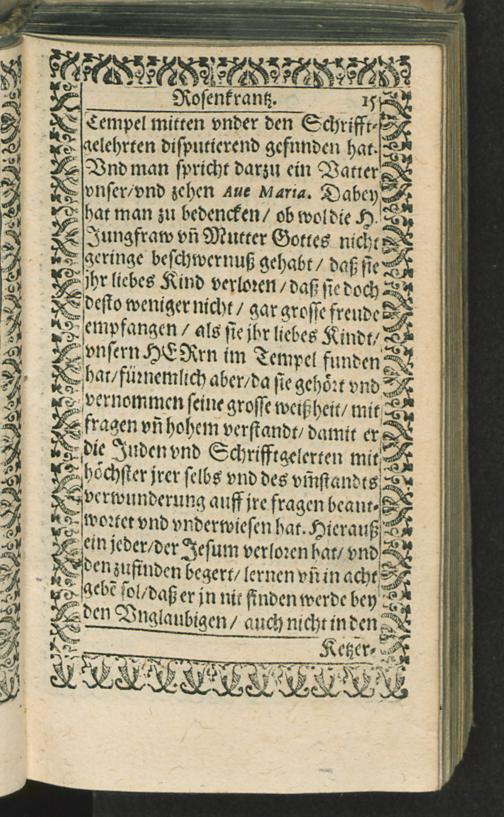 Rosenkrantz. 15
Tempel mitten vnder den Schrifft-
gelehrten disputierend gefunden hat.
Vnd man spricht darzu ein Vatter
vnser/vnd zehen Aue Maria. Dabey
hat man zu bedencken / ob wol die H.
Jungfraw vn̄ Mutter Gottes nicht
geringe beschwernuß gehabt / daß sie
jhr liebes Kind verloren / daß sie doch
desto weniger nicht / gar grosse freude
empfangen / als sie jhr liebes Kindt/
vnsern HERrn im Tempel funden
hat/fürnemlich aber/da sie gehört vnd
vernommen seine grosse weißheit/ mit
fragen vn̄ hohem verstandt/ damit er
die Juden vnd Schrifftgelerten mit
höchster jrer selbs vnd des vm̄standts
verwunderung auff jre fragen beant-
wortet vnd vnderwiesen hat. Hierauß
ein jeder/der Jesum verloren hat/ vnd
den zufinden begert/ lernen vn̄ in acht
gebē sol/daß er jn nit finden werde bey
den Vnglaubigen / auch nicht in den
Ketzer-